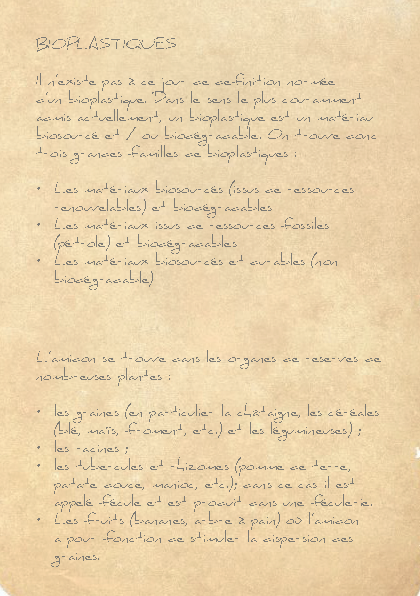 BIOPLASTIQUES
Il n'existe pas à ce jour de définition normée
d'un bioplastique. Dans le sens le plus couramment
admis actuellement, un bioplastique est un matériau
biosourcé et / ou biodégradable. On trouve donc
trois grandes familles de bioplastiques :
• Les matériaux biosourcés (issus de ressources
renouvelables) et biodégradables
• Les matériaux issus de ressources fossiles
(pétrole) et biodégradables
• Les matériaux biosourcés et durables (non
biodégradable)
L'amidon se trouve dans les organes de reserves de
nombreuses plantes :
• les graines (en particulier la châtaigne, les céréales
(blé, maïs, froment, etc.) et les légumineuses) ;
• les racines ;
• les tubercules et rhizomes (pomme de terre,
patate douce, manioc, etc.); dans ce cas il est
appelé fécule et est produit dans une féculerie.
• Les fruits (bananes, arbre à pain) où l'amidon
a pour fonction de stimuler la dispersion des
graines.